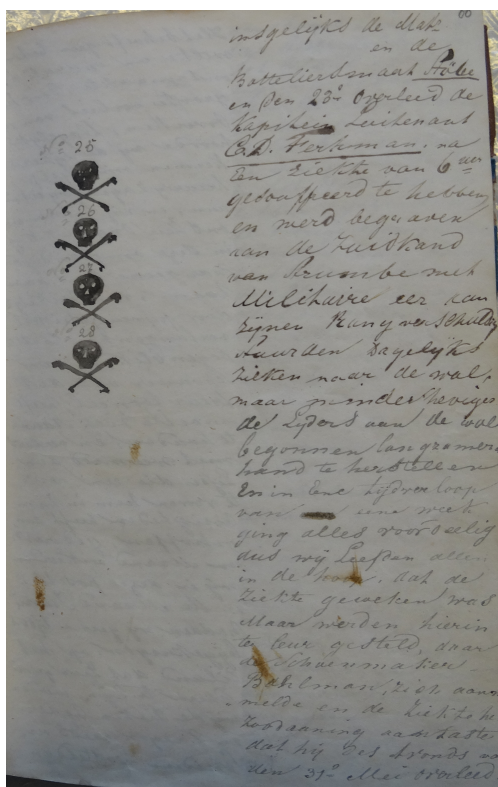 60
insgelijks de Mat-
en de
Botteliersmaat
en den 23e Overleed de
Kapitein Luitenant
C.D. Ferkman. na
Een Ziekte van 6
gesouffreerd te hebben
en werd begraven
aan de Zuidkand
van met
Militaire eer aan
zijnen Rang verschuldig
Dagelijks
zieken naar de wal,
maar minder heviger
de Lijders aan de wal
begonnen langramer
hand te herstellen
En in Ene tijdverloop
van eene week
ging alles voordelig
dus wij Leefden allen
in de hoop. dat de
Ziekte geweken was
Maar werden hierin
te leur gesteld, daar
de Schoenmaker
Bohlman, zich aan
melde en de Ziekte he
Zoodaaning aantaste
dat hij des Avonds
den 31e Mei Overleed
No 25
26
27
28